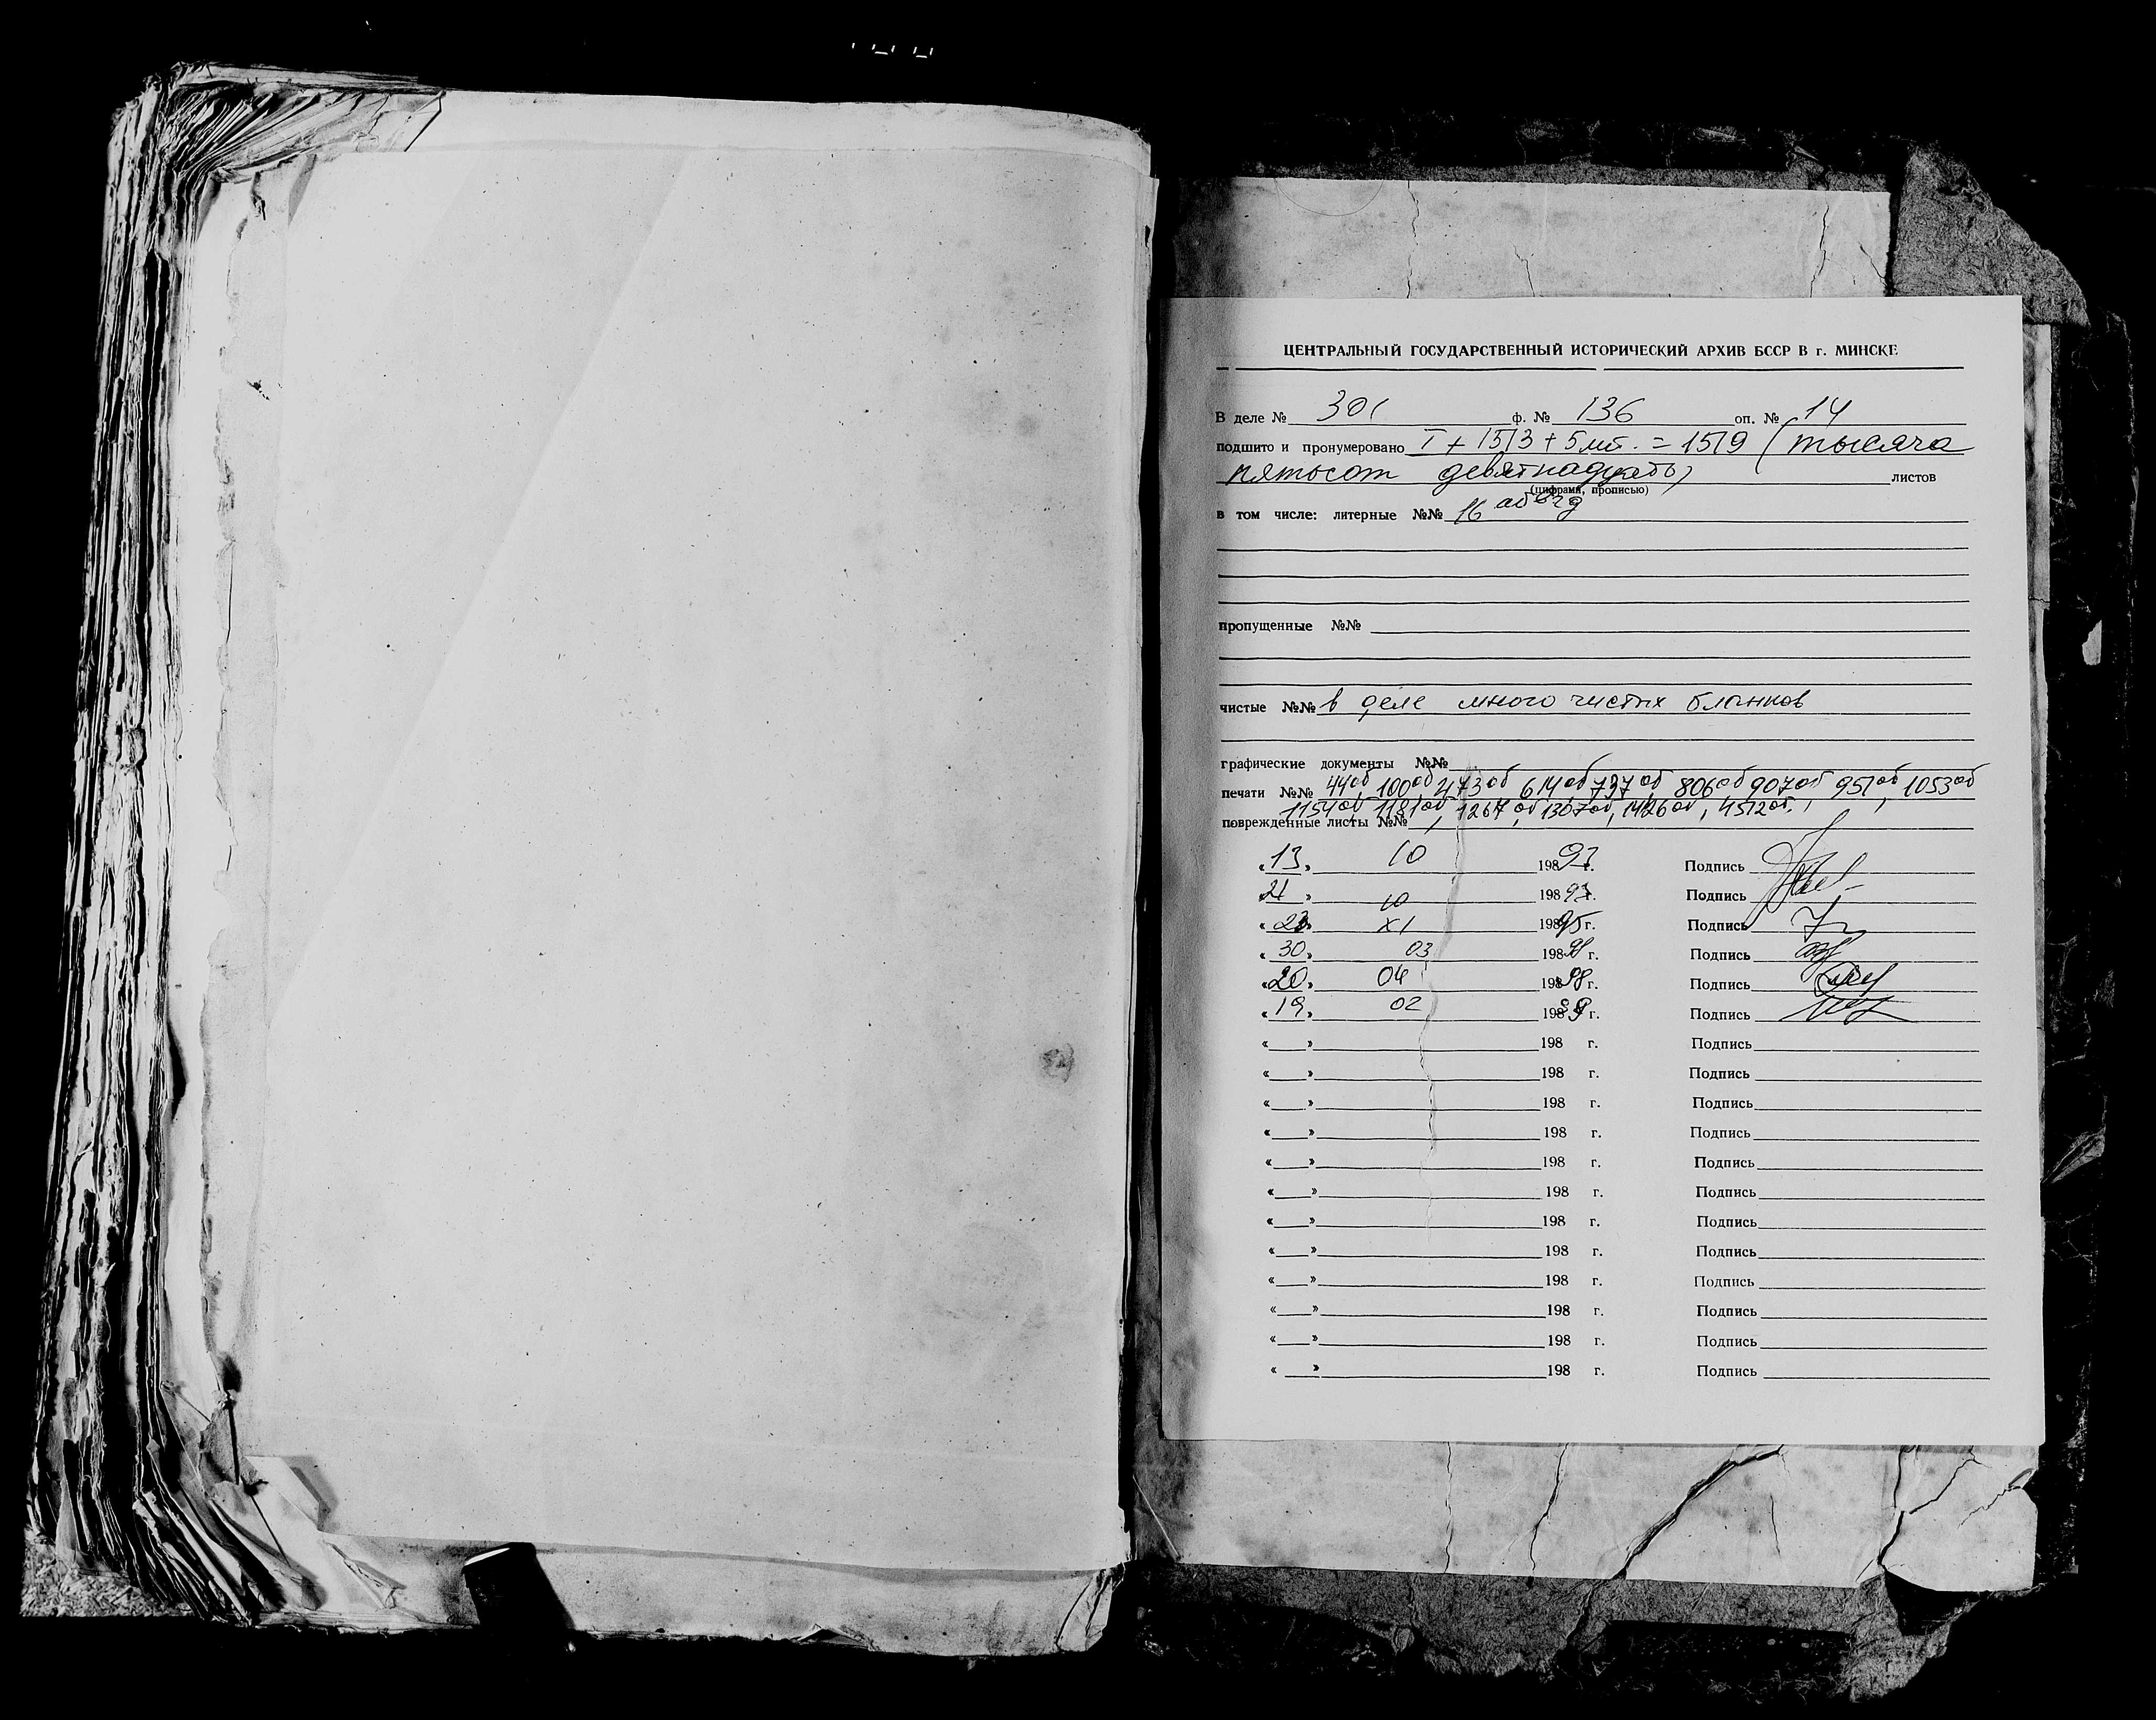 ЦЕНТРАЛЬНЫЙ ГОСУДАРСТВЕННЫЙ ИСТОРИЧЕСКИЙ АРХИВ БССР В г. МИНСКЕ
В деле № 301 ф. № 136 оп. № 14
подшито и пронумеровано I + 1513 + 5 лит. = 1519 (тысяча
пятьсот девятнадцать) листов
(цифрами, прописью)
в том числе: литерные №№ 16 абвгд
пропущенные №№
чистые №№ в деле много чистых бланков
графические документы №№
печати №№ 44об, 100об, 473об, 614об, 737об, 806об, 907об, 951об, 1053об
1154об, 1181об, 1267об, 1307об, 1426об, 1512об.
поврежденные листы №№
«13» 10 198 93 г. Подпись
21 » 10 198 93 г. Подпись
«23» XI 198 95 г. Подпись
«30» 03 198 г. Подпись
«20» 04 198 98 г. Подпись
«19» 02 198 г. Подпись
« » 198 г. Подпись
« » 198 г. Подпись
« » 198 г. Подпись
« » 198 г. Подпись
« » 198 г. Подпись
« » 198 г. Подпись
« » 198 г. Подпись
« » 198 г. Подпись
« » 198 г. Подпись
« » 198 г. Подпись
« » 198 г. Подпись
« » 198 г. Подпись